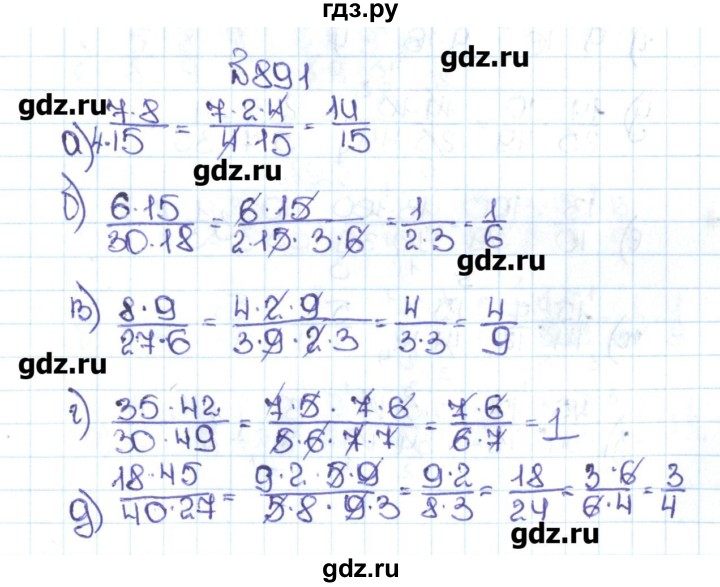 гдз.ру
№891
gdz.ru
gdz.ru
а) 7·8/4·15 = 7·2·4/4·15 = 14/15
gdz.ru
б) 6·15/30·18 = 6·15/2·15·3·6 = 1/2·3 = 1/6
gdz.ru
в) 8·9/27·6 = 4·2·9/3·9·2·3 = 4/3·3 = 4/9
gdz.ru
г) 35·42/30·49 = 7·5·7·6/5·6·7·7 = 7·6/6·7 = 1
д) 18·45/40·27 = 9·2·5·9/5·8·9·3 = 9·2/8·3 = 18/24 = 3·6/6·4 = 3/4
gdz.ru
gdz.ru